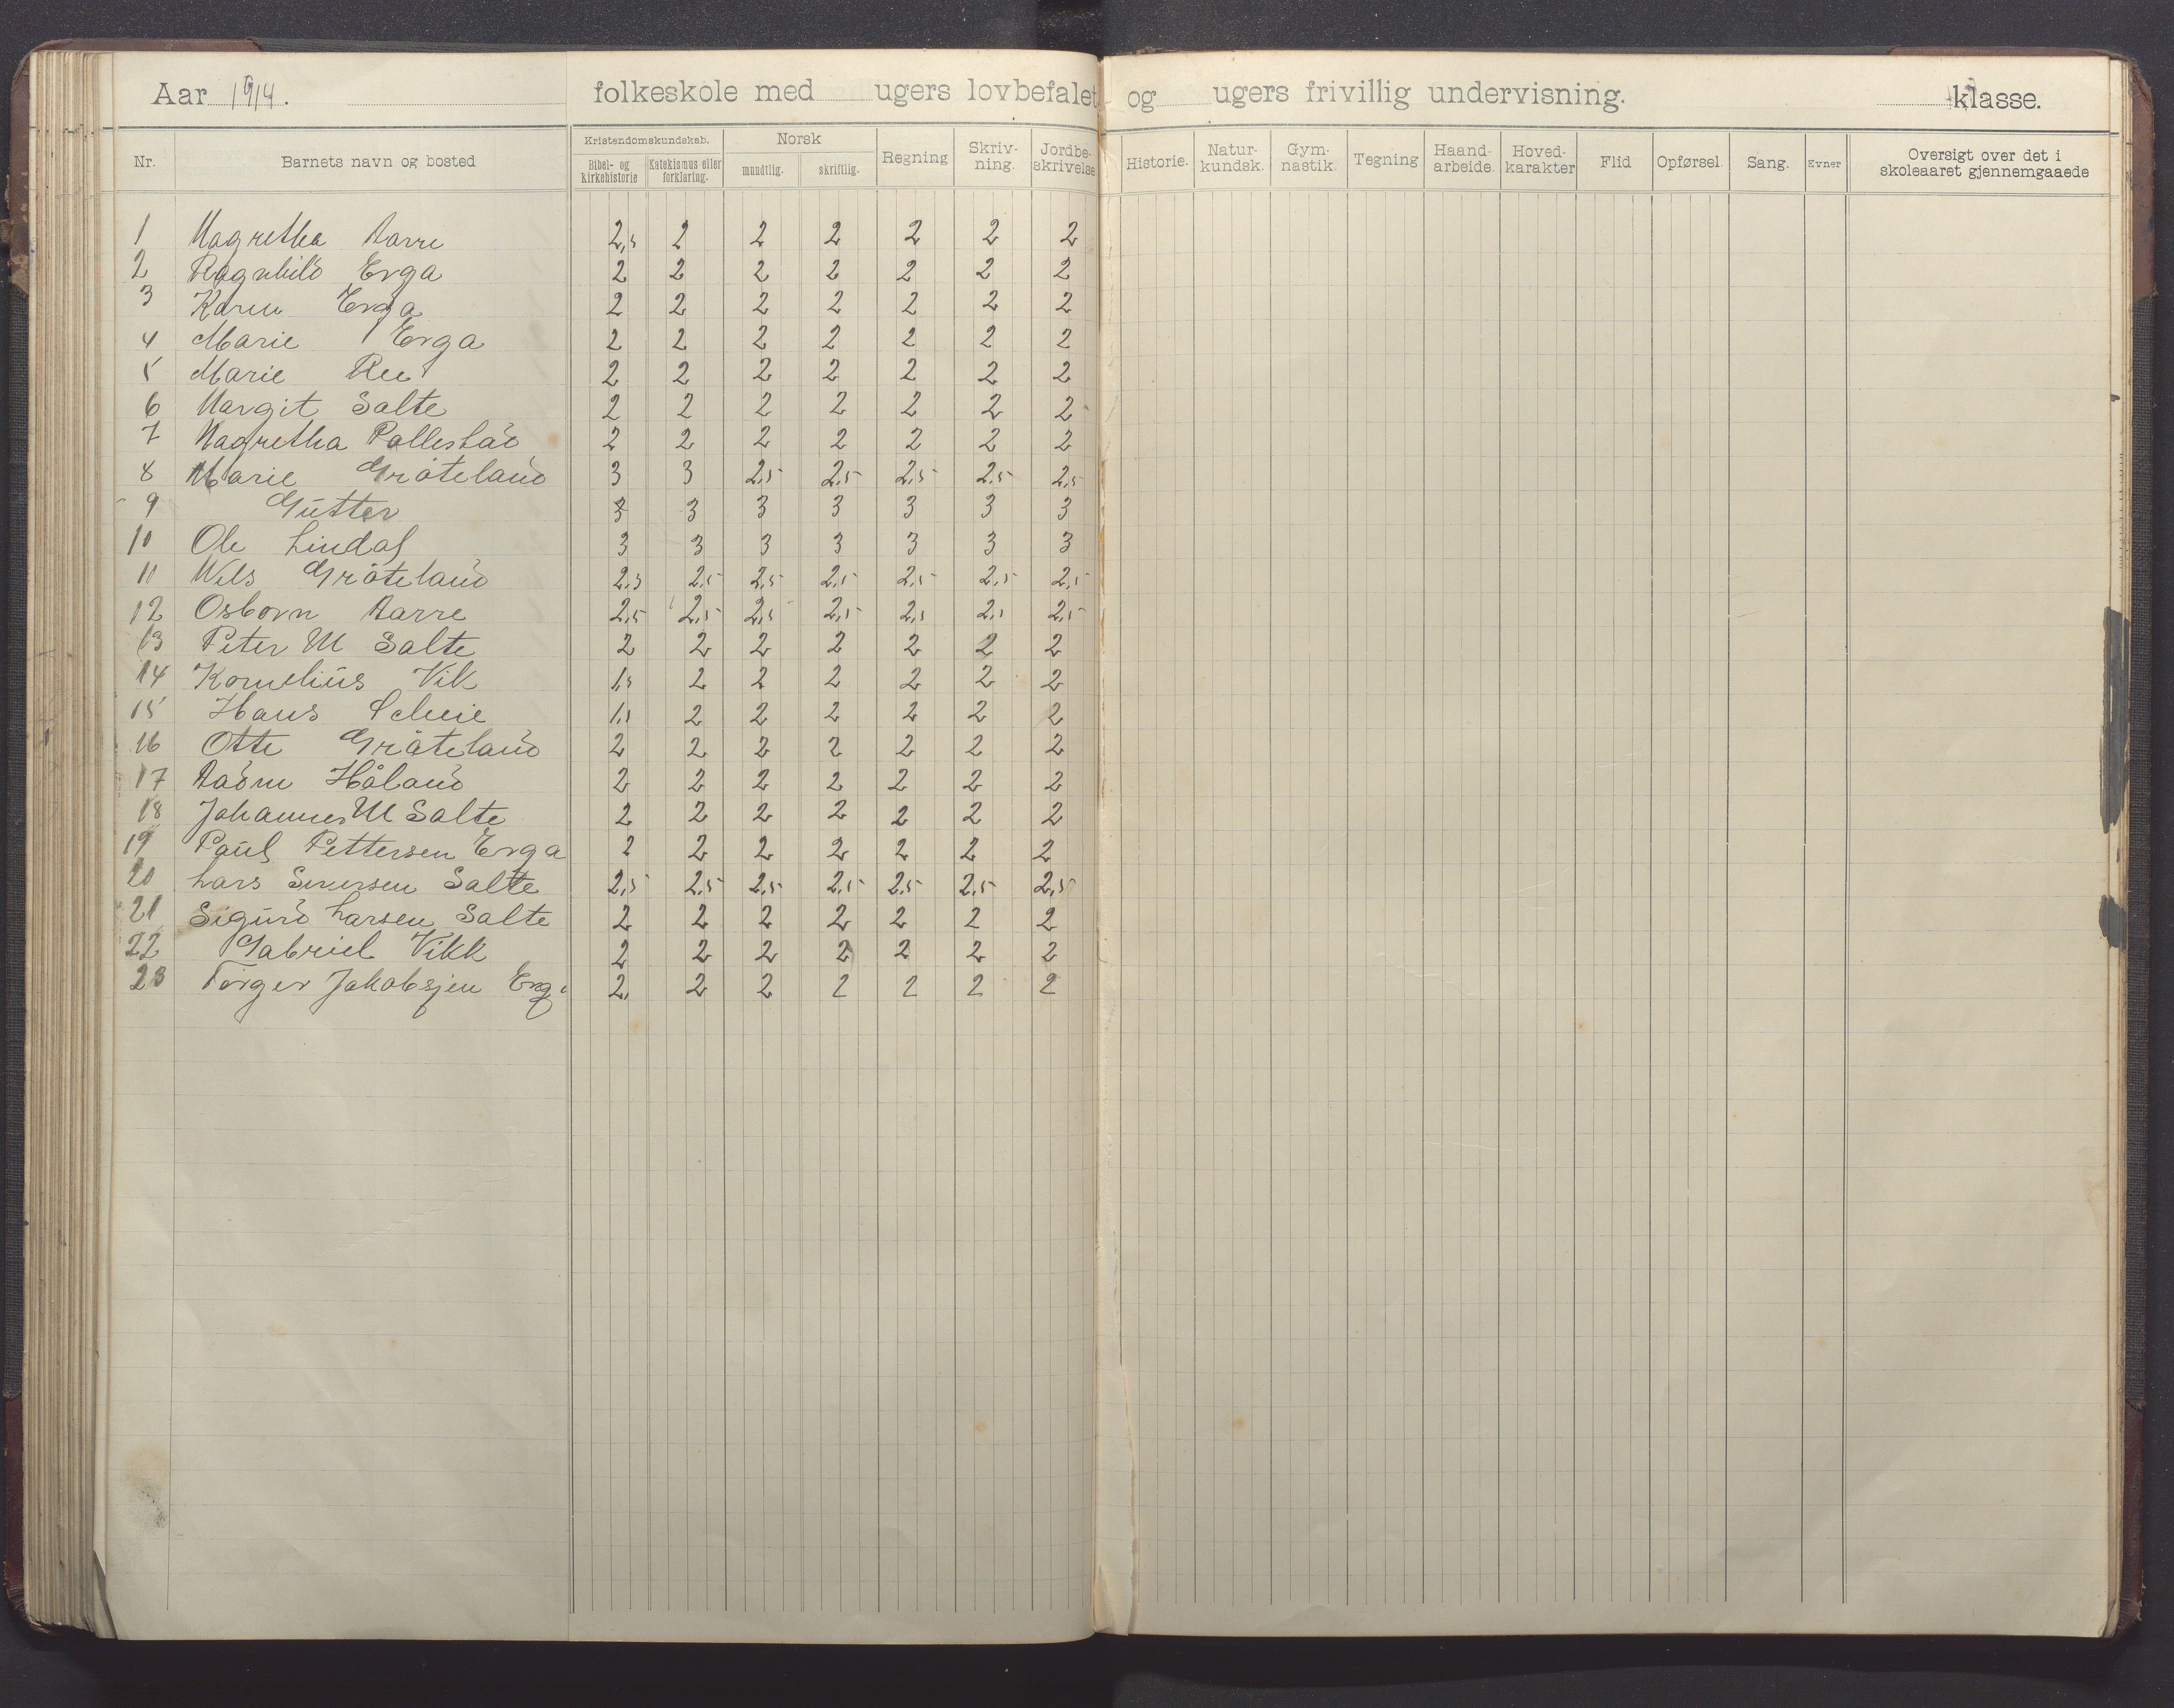 Aar 1914. folkeskole med ugers lovbefalet og ugers frivillig undervisning. klasse.
Nr. Barnets navn og bosted Kristendomskundskab. Bibel- og kirkehistorie Katekismus eller forklaring. Norsk mundtlig. skriftlig. Regning Skriv-ning. Jordbe-skrivelse Historie. Natur-kundsk. Gym-nastik. Tegning Haand-arbeide. Hoved-karakter Flid Opførsel. Sang. Evner Oversigt over det i skoleaaret gjennemgaaede
1 Magretha Aarre 2,5 2 2 2 2 2 2
2 Ragnhild Erga 2 2 2 2 2 2 2
3 Karen Erga 2 2 2 2 2 2 2
4 Marie Erga 2 2 2 2 2 2 2
5 Marie Ree 2 2 2 2 2 2 2
6 Margit Salte 2 2 2 2 2 2 2
7 Magretha Pollestad 2 2 2 2 2 2 2
8 Marie Gråteland 3 3 2,5 2,5 2,5 2,5 2,5
9 Gutter 3 3 3 3 3 3 3
10 Ole Lindal 3 3 3 3 3 3 3
11 Nels Gråteland 2,5 2,5 2,5 2,5 2,5 2,5 2,5
12 Osborn Aarre 2,5 2,5 2,5 2,5 2,5 2,5 2,5
13 Peter M Salte 2 2 2 2 2 2 2
14 Kornelius Vik 1,5 2 2 2 2 2 2
15 Hans 1,5 2 2 2 2 2 2
16 Otte Gråteland 2 2 2 2 2 2 2
17 Aadne Håland 2 2 2 2 2 2 2
18 Johannes M Salte 2 2 2 2 2 2 2
19 Paul Pettersen Erga 2 2 2 2 2 2 2
20 Lars Salte 2,5 2,5 2,5 2,5 2,5 2,5 2,5
21 Sigurd Larsen Salte 2 2 2 2 2 2 2
22 Gabriel Vikk 2 2 2 2 2 2 2
23 Torger Jakobsjen Erga 2 2 2 2 2 2 2